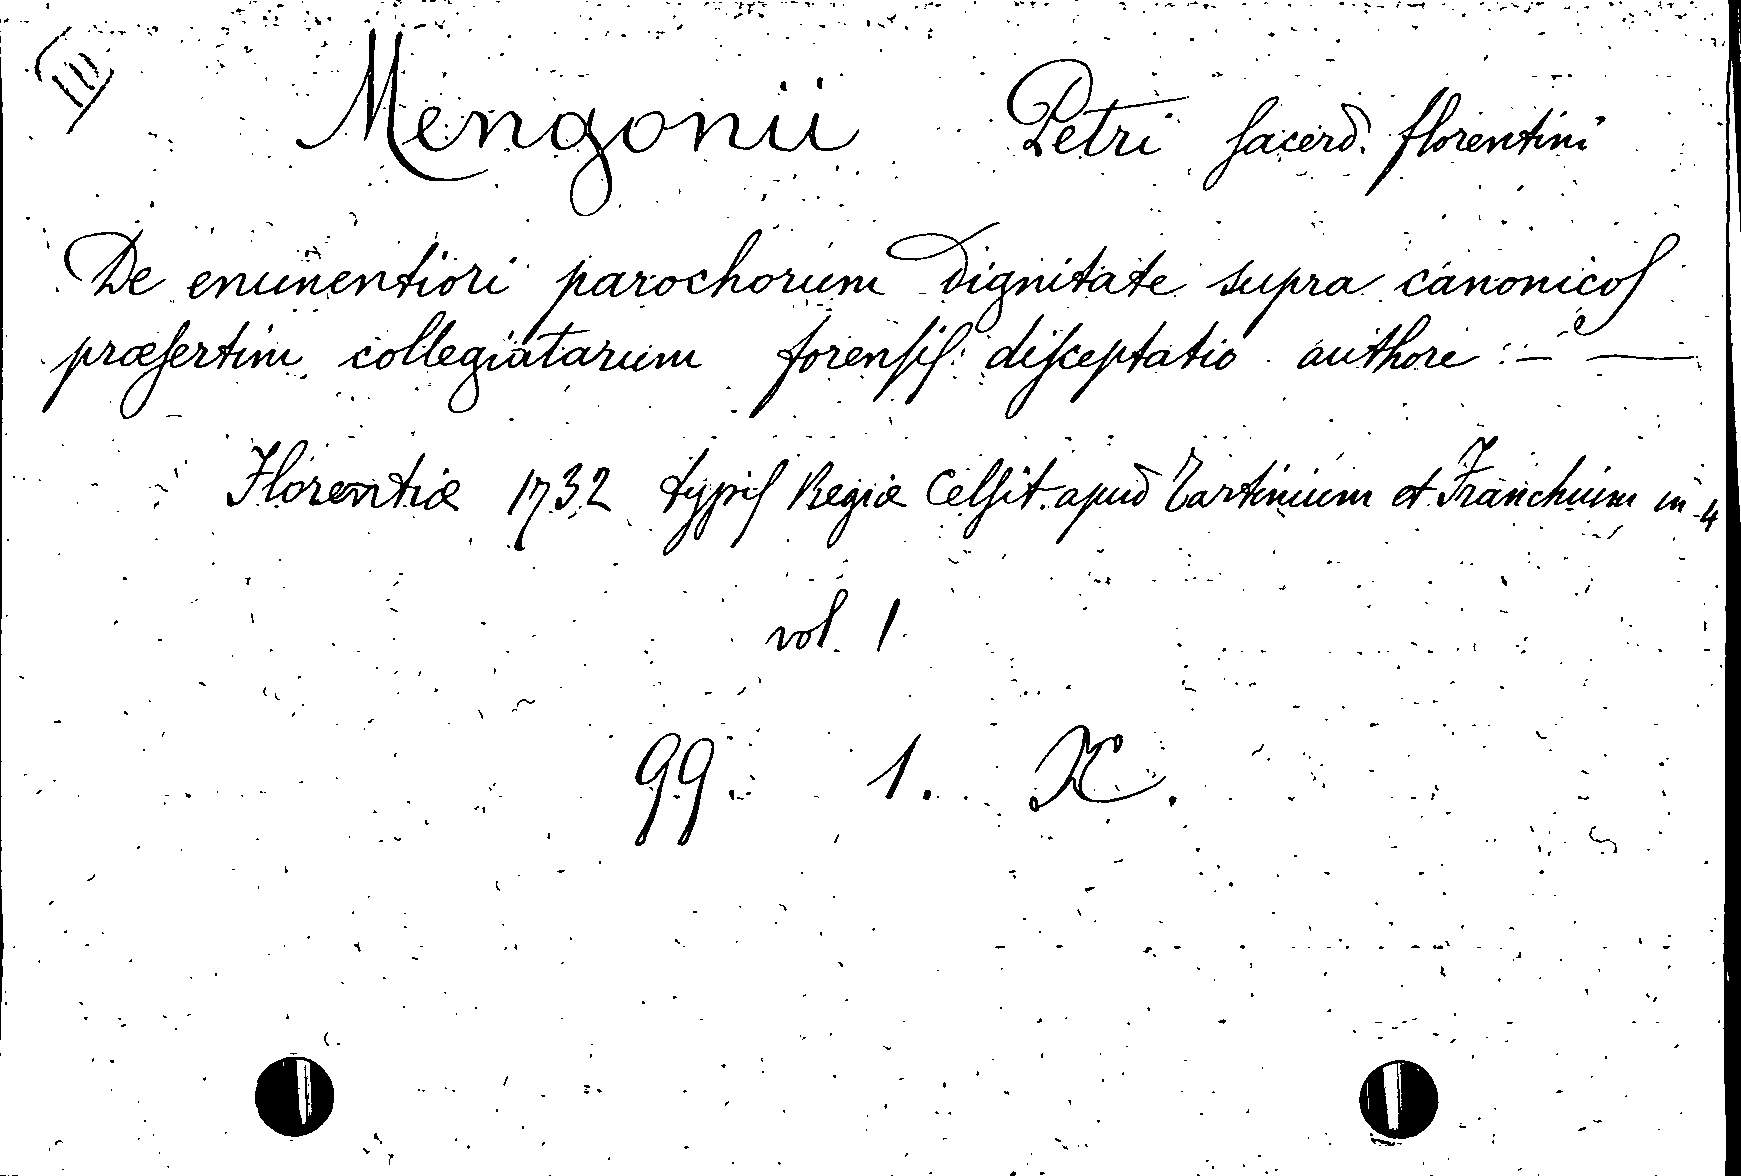 III
Mengonii Petri sacerd. florentini
De eminentiori parochorum dignitate supra canonicos
præsertim collegiatarum forensis disceptatio authore :— —
Florentiæ 1732 typis Regiæ Celsit. apud Tartinium et Franchium in 4
vol. 1.
99. 1. X.